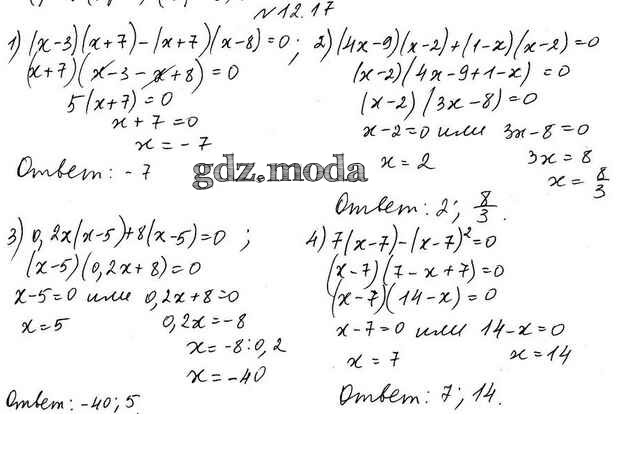 №12.17
1) (x-3)(x+7)-(x+7)(x-8)=0;
(x+7)(x-3-x+8)=0
5(x+7)=0
x+7=0
x=-7
Ответ: -7
2) (4x-9)(x-2)+(1-x)(x-2)=0
(x-2)(4x-9+1-x)=0
(x-2)(3x-8)=0
x-2=0 или 3x-8=0
x=2 3x=8
x=8/3
Ответ: 2; 8/3.
gdz.moda
3) 0,2x(x-5)+8(x-5)=0;
(x-5)(0,2x+8)=0
x-5=0 или 0,2x+8=0
x=5 0,2x=-8
x=-8:0,2
x=-40
Ответ: -40; 5.
4) 7(x-7)-(x-7)²=0
(x-7)(7-x+7)=0
(x-7)(14-x)=0
x-7=0 или 14-x=0
x=7 x=14
Ответ: 7; 14.